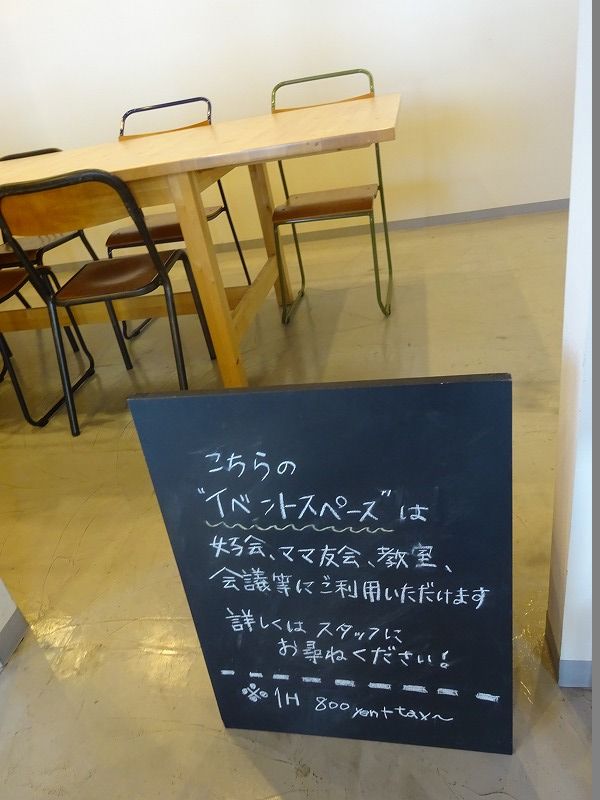 こちらの
"イベントスペース"は
女子会、ママ友会、教室、
会議等にご利用いただけます
詳しくは スタッフに
お尋ねください!
※ 1H 800yen+tax〜